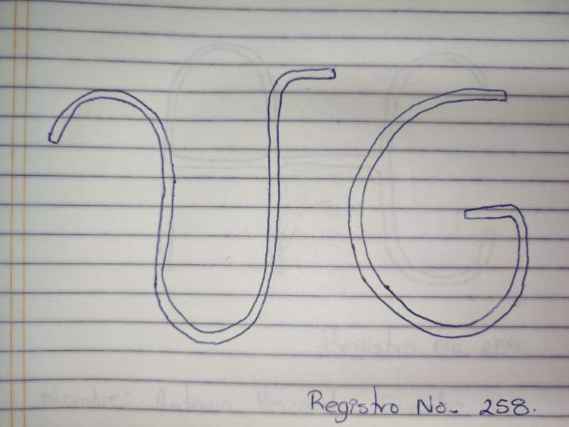 UG
Registro No. 258.